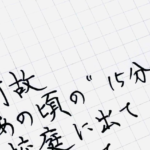 何故
あの頃の"15分
校庭に出て